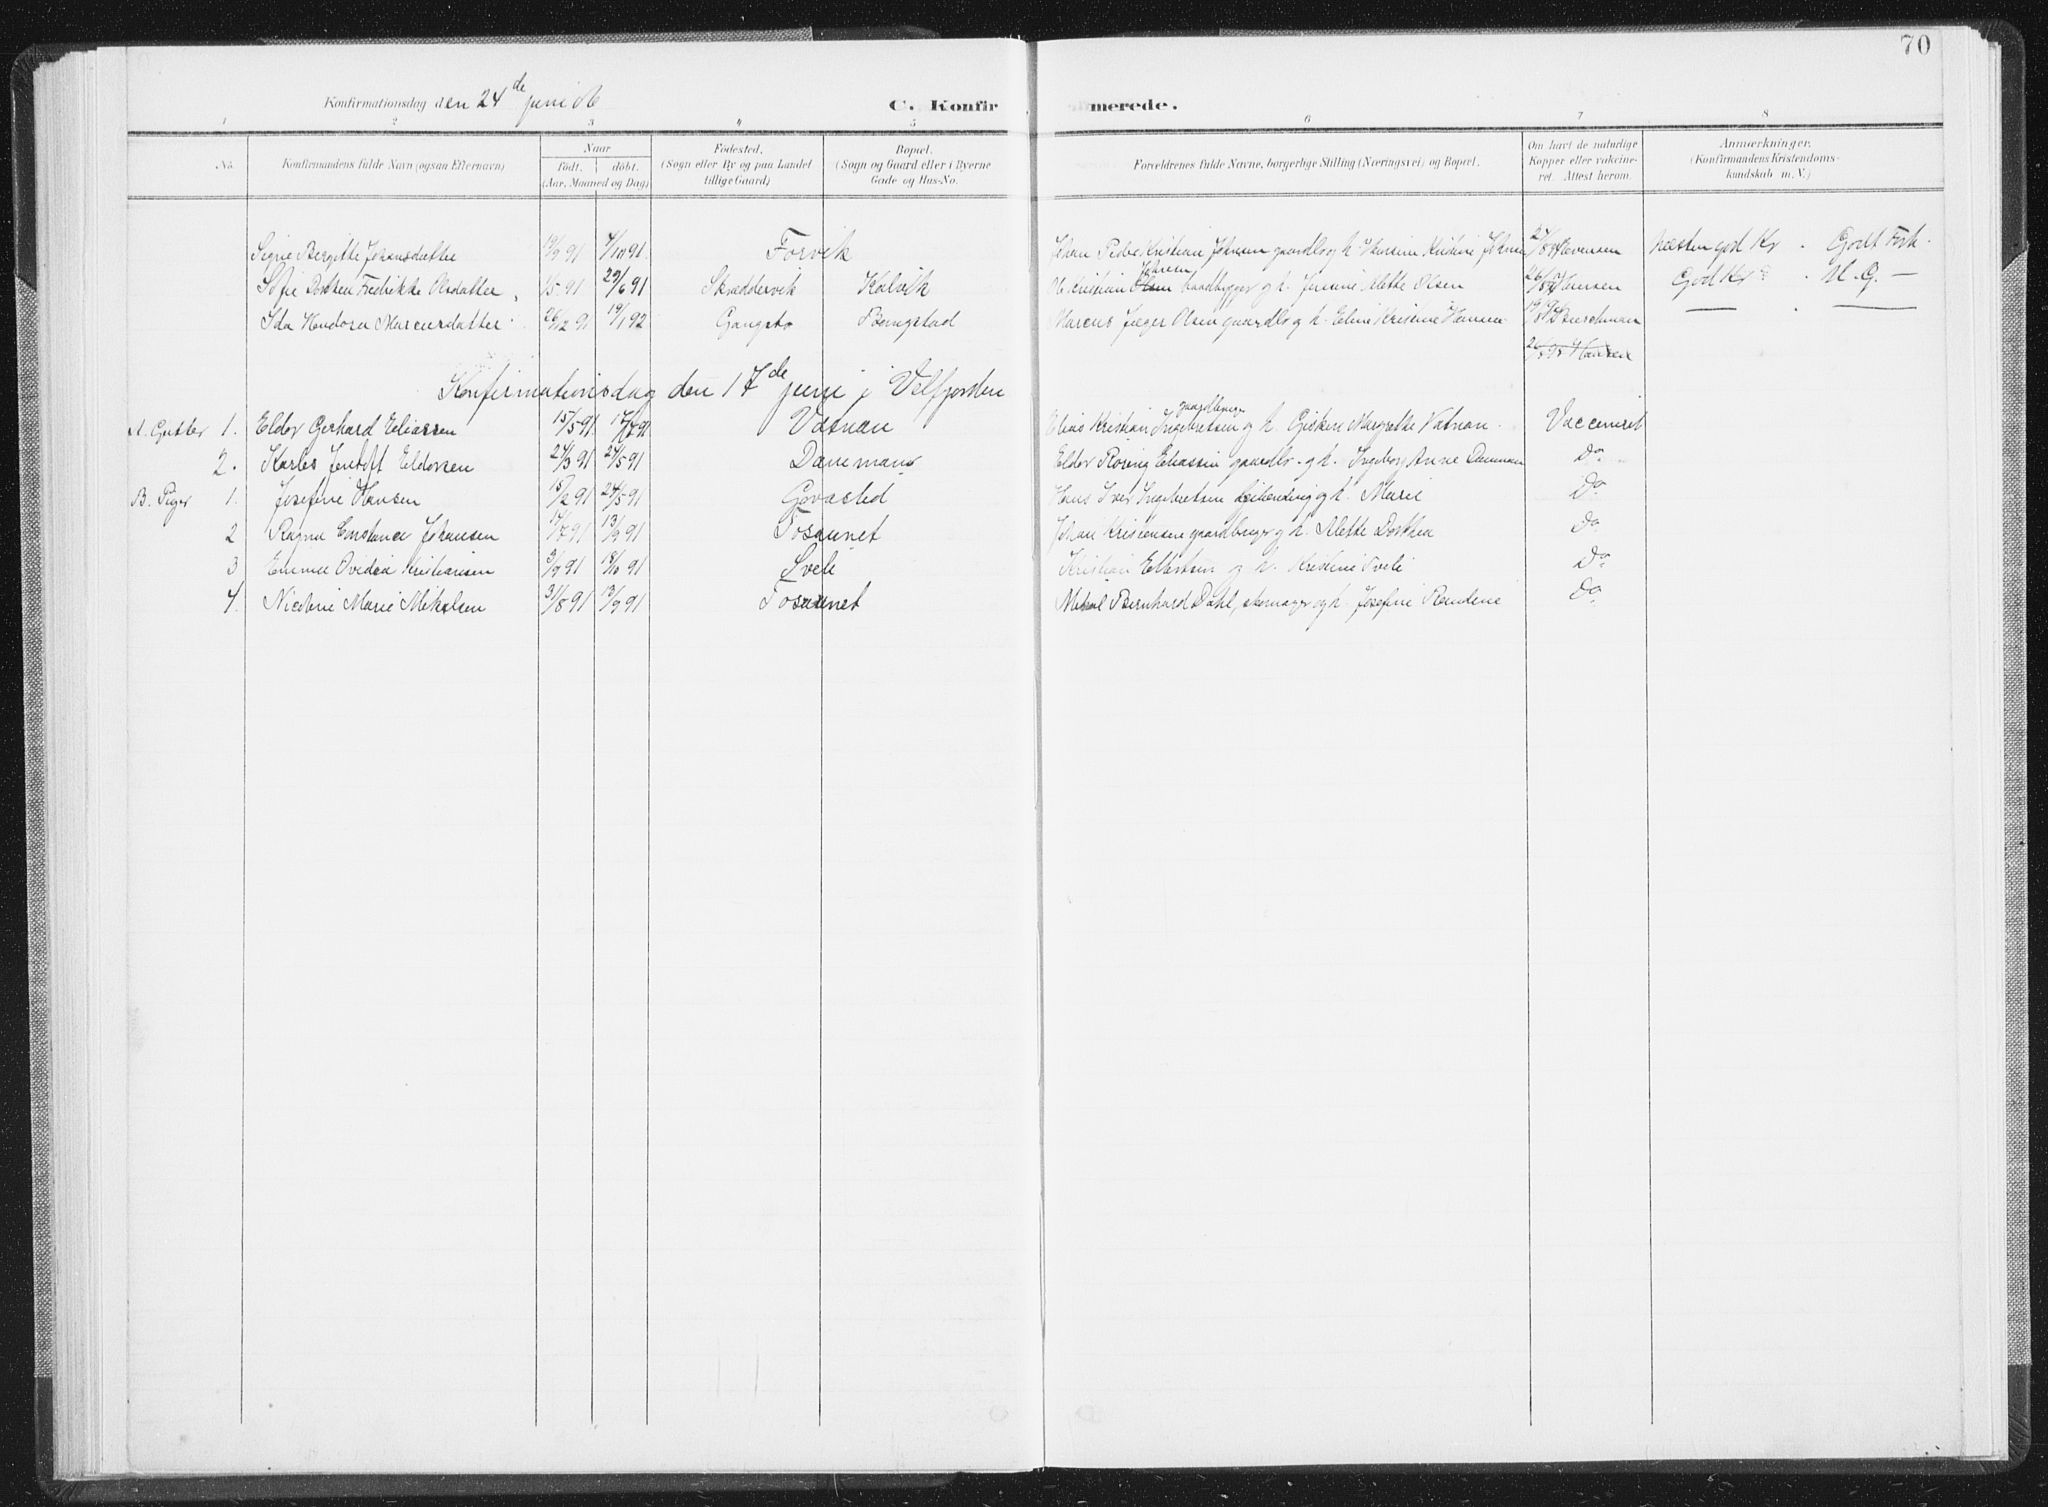 70
Konfirmationsdag den 24de juni 06 C. Konfirmerede.
1 2 3 4 5 6 7 8
No. Konfirmandens fulde Navn (ogsaa Efternavn) Naar Födt. döbt. (Aar, Maaned og Dag) Födested. (Sogn eller By og paa Landet tillige Gaard) Bopæl. (Sogn og Gaard eller i Byerne Gade og Hus-No. Forældrenes fulde Navne, borgerlige Stilling (Næringsvei) og Bopæl. Om havt de naturlige Kopper eller vakcineret. Attest herom. Anmærkninger. (Konfirmandens Kristendomskundskab m. V.)
Signe Bergitte Johansdatter 19/9 91 4/10 91. Forvik Johan Peder Kristian Johnsen gaardbr og h. Hansine Kristine næsten god Kr. Godt Forh.
Sofie Dorthea Fredrikke Olsdatter 1/5 91 29/6 91 Skræddervik Kalvik Kristian Johnsen baadbygger g h. Jensine Alette Olsen Hansen God Kr. M. G. —
Ida Marcusdatter 26/12 91 19/1 92 Gangstø Bengstad Marcus Jæger Olsen gaardbr g h. Eline — . —
Konfirmationsdag den 17de juni i Velfjorden
A. Gutter 1. Eldor Gerhard Eliassen 15/5 91. 17/7 91 Vatnan Elias Kristian Ingebretsen gaardbruger g h. Gjertine Margrethe Vatnan. Vacceneret
2. Karles Jentoft Eldorsen 24/3 91 24/5 91 Danemans Eldor Rosing Eliassen gaardbr. g h. Ingeborg Anne Do
B. Piger 1. Josefine Hansen 15/2 91 24/5 91 Govasted Hans Iver Ingebretsen g h. Marie Do
2 Ragna Constance Johansen 17/7 91 13/9 91 Tosaunet Johan Kristensen gaardbruger g h. Alette Dorthea Do
3 Emma Ovidia Kristiansen 3/9 91 18/10 91 Sveli Kristian Ellertsen g h. Kristine Do
4. Nicoline Marie Mikalsen 31/8 91 13/9 91 Tosaunet Mikal Bernhard Dahl, skomager og h. Josefine Do